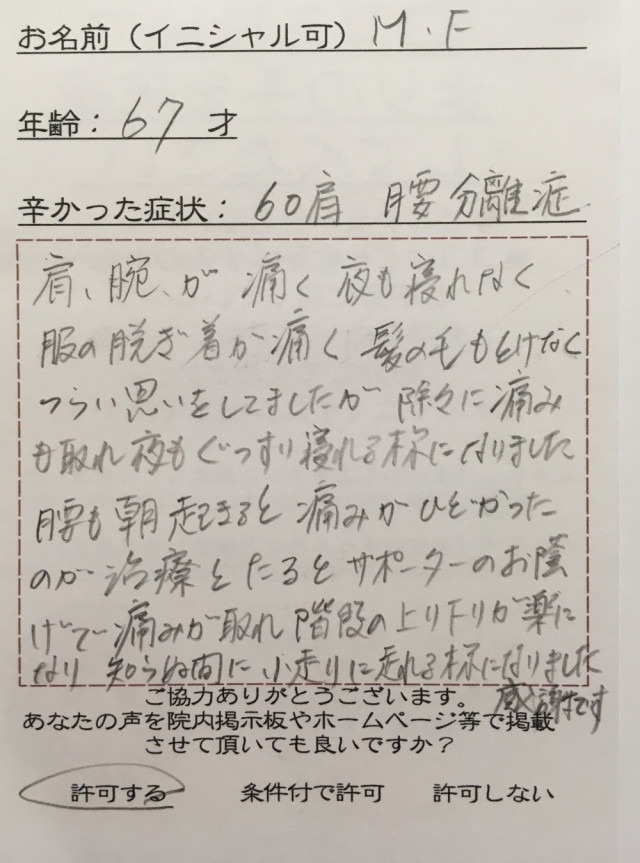 お名前（イニシャル可） M.F
年齢： 67 才
辛かった症状： 60肩 腰分離症.
肩、腕、が 痛く 夜も寝れなく
服の脱ぎ着が痛く 髪の毛もとけなく
つらい思いをしてましたが 除々に痛み
も取れ夜もぐっすり寝れる様になりました
腰も朝起きると痛みがひどかった
のが治療とたるとサポーターのお蔭
げで痛みが取れ階段の上り下りが楽に
なり 知らぬ間に小走りに走れる様になりました
感謝です
ご協力ありがとうございます。
あなたの声を院内掲示板やホームページ等で掲載
させて頂いても良いですか？
許可する 条件付で許可 許可しない